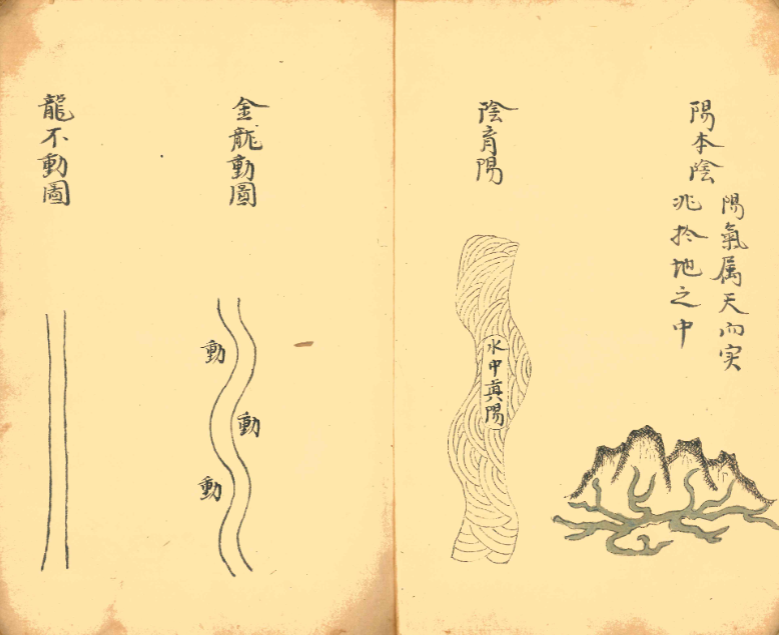 陽本陰
陽氣属天而实
兆於地之中
陰育陽
水中真陽
金龍動圖
動
動
動
龍不動圖